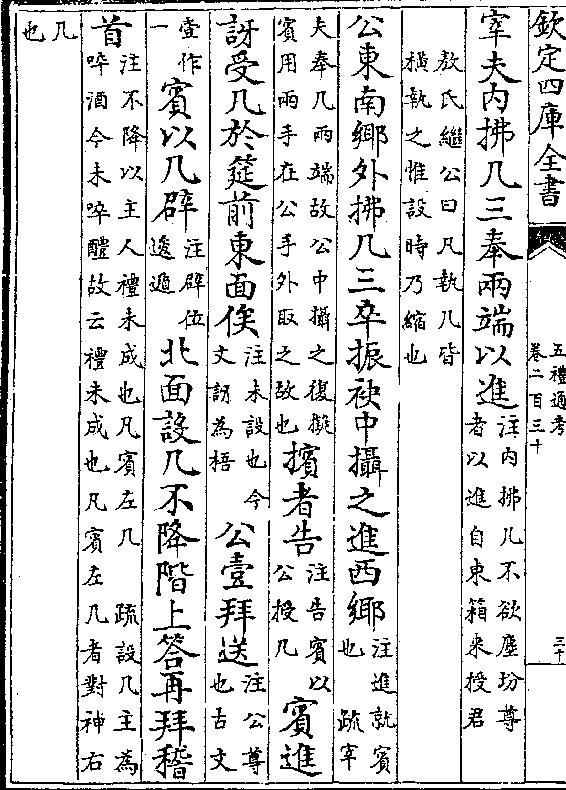 欽定四庫全書
五禮通考
卷二百三十
三十
宰夫内拂几三奉兩端以進
注内拂几不欲塵坋尊
者以進自東箱来授君
敖氏繼公曰凡執几皆
横執之惟設時乃縮也
公東南鄉外拂几三卒振袂中攝之進西鄉
注進就賓
也 疏宰
夫奉几兩端故公中攝之復擬
賓用兩手在公手外取之故也
擯者告
注告賓以
公授几
賓進
訝受几於筵前東面俟
注未設也今
文訝為梧
公壹拜送
注公尊
也古文
壹作
一
賓以几辟
注辟位
逡遁
北面設几不降階上答再拜稽
首
注不降以主人禮未成也凡賓左几 疏設几主為
啐酒今未啐醴故云禮未成也凡賓左几者對神右
几
也